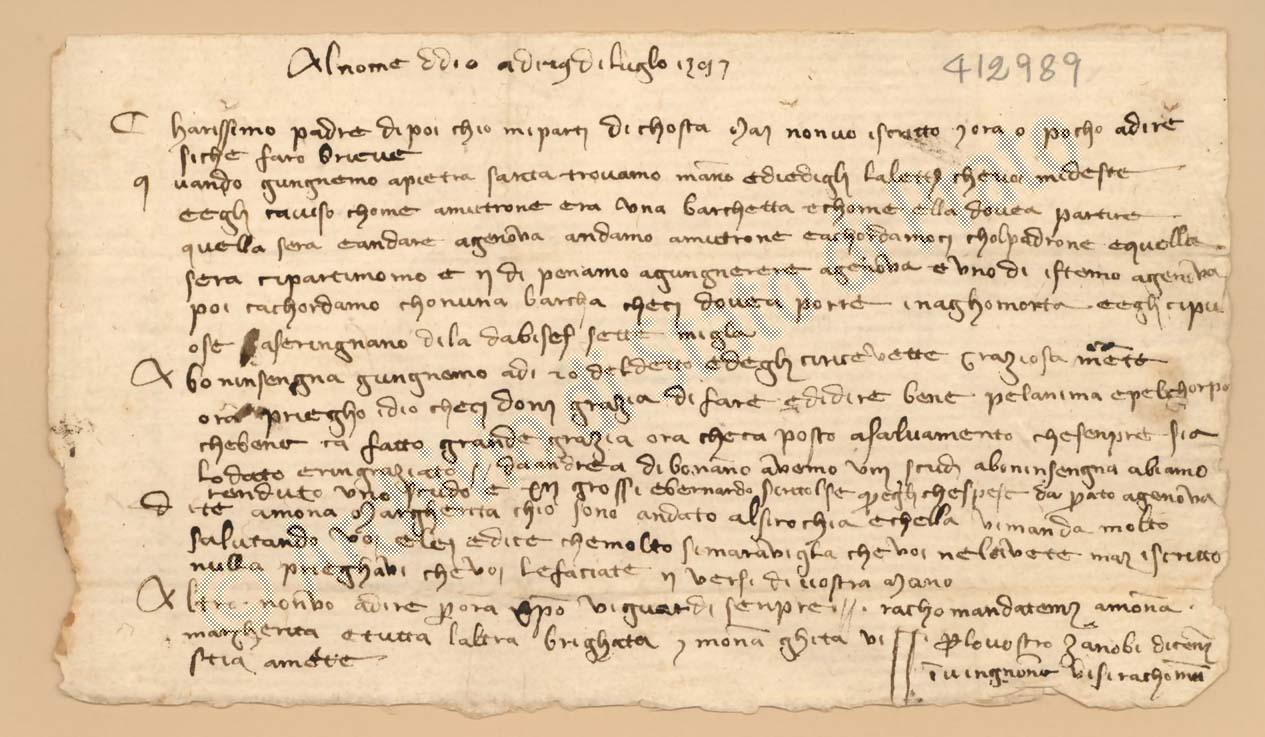 Al nome ddio adi 19 di luglio
412989
Charissimo padre dipoi chio mi parti di chosta mai non vo iscritto ora o pocho a dire
siche faro brieve
quando gungnemo a pietra santa trovamo e diedigli la lettera che voi mi deste
e egli caviso chome a mutrone era una barchetta e chome ella dovea partire
quella sera e andare a genova andamo a mutrone e achordamoci chol padrone e quella
sera ci partimomo e II di penamo a gungnerere a genova e uno di istemo a genova
poi cachordamo chon una barcha che ci dovea porre in aghomorta e egli ci pu
ose a seringnano di la da sette migla
A boninsengna gungnemo adi 20 del detto ed egli ci ricevette graziosa mēte
ora priegho idio che ci doni grazia di fare e di dire bene pel anima e pel chorpo
che bene ca fatto grande grazia ora che ca posto a salvamento che senpre sia
lodato e ringraziato // da andrea di bonano avemo VIII scudi a boninsengna abiamo
renduto uno scudo e grossi e bernardo se ritolse per gli che spese da prato a genova
Dite a mona margherita chio sono andato al sirochia e chella vi manda molto
salutando voi e lei e dice che molto si maraviglia che voi ne le ivete mai iscritto
nulla prieghavi che voi le faciate II versi di vostra mano
Altro non vo a dire per ora xpo vi guardi senpre // rachomandatemi a mona
margherita e tutta laltra brighata mona ghita vi si
scia a mēte
Per lo vostro zanobi di
in vingnone vi si rachomā
Copyright Archivio di Stato di Prato